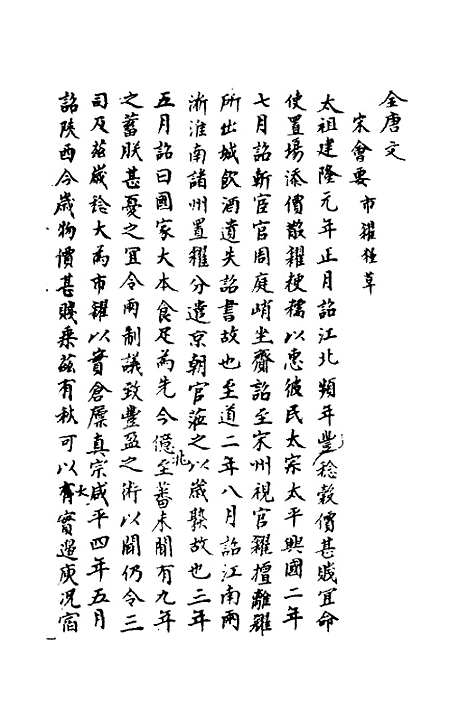 全唐文
宋會要 市糴糧草
太祖建隆元年正月詔江北頻年豐稔穀價甚賤宜命
使置場添價散糴粳糯以惠彼民太宗太平興國二年
七月詔斬宦官周庭峭坐齎詔至宋州視官糴擅離糴
所出城飲酒遺失詔書故也至道二年八月詔江南兩
浙淮南諸州置糴分遣京朝官蒞之以歲稔故也三年
五月詔曰國家大本食足為先今億兆至蕃未聞有九年
之蓄朕甚憂之宜令兩制議致豐盈之術以聞仍令三
司及茲歲稔大為市糴以實倉廩真宗咸平四年五月
詔陝西今歲物價甚賤乘茲有秋可以大實邊庾況宿